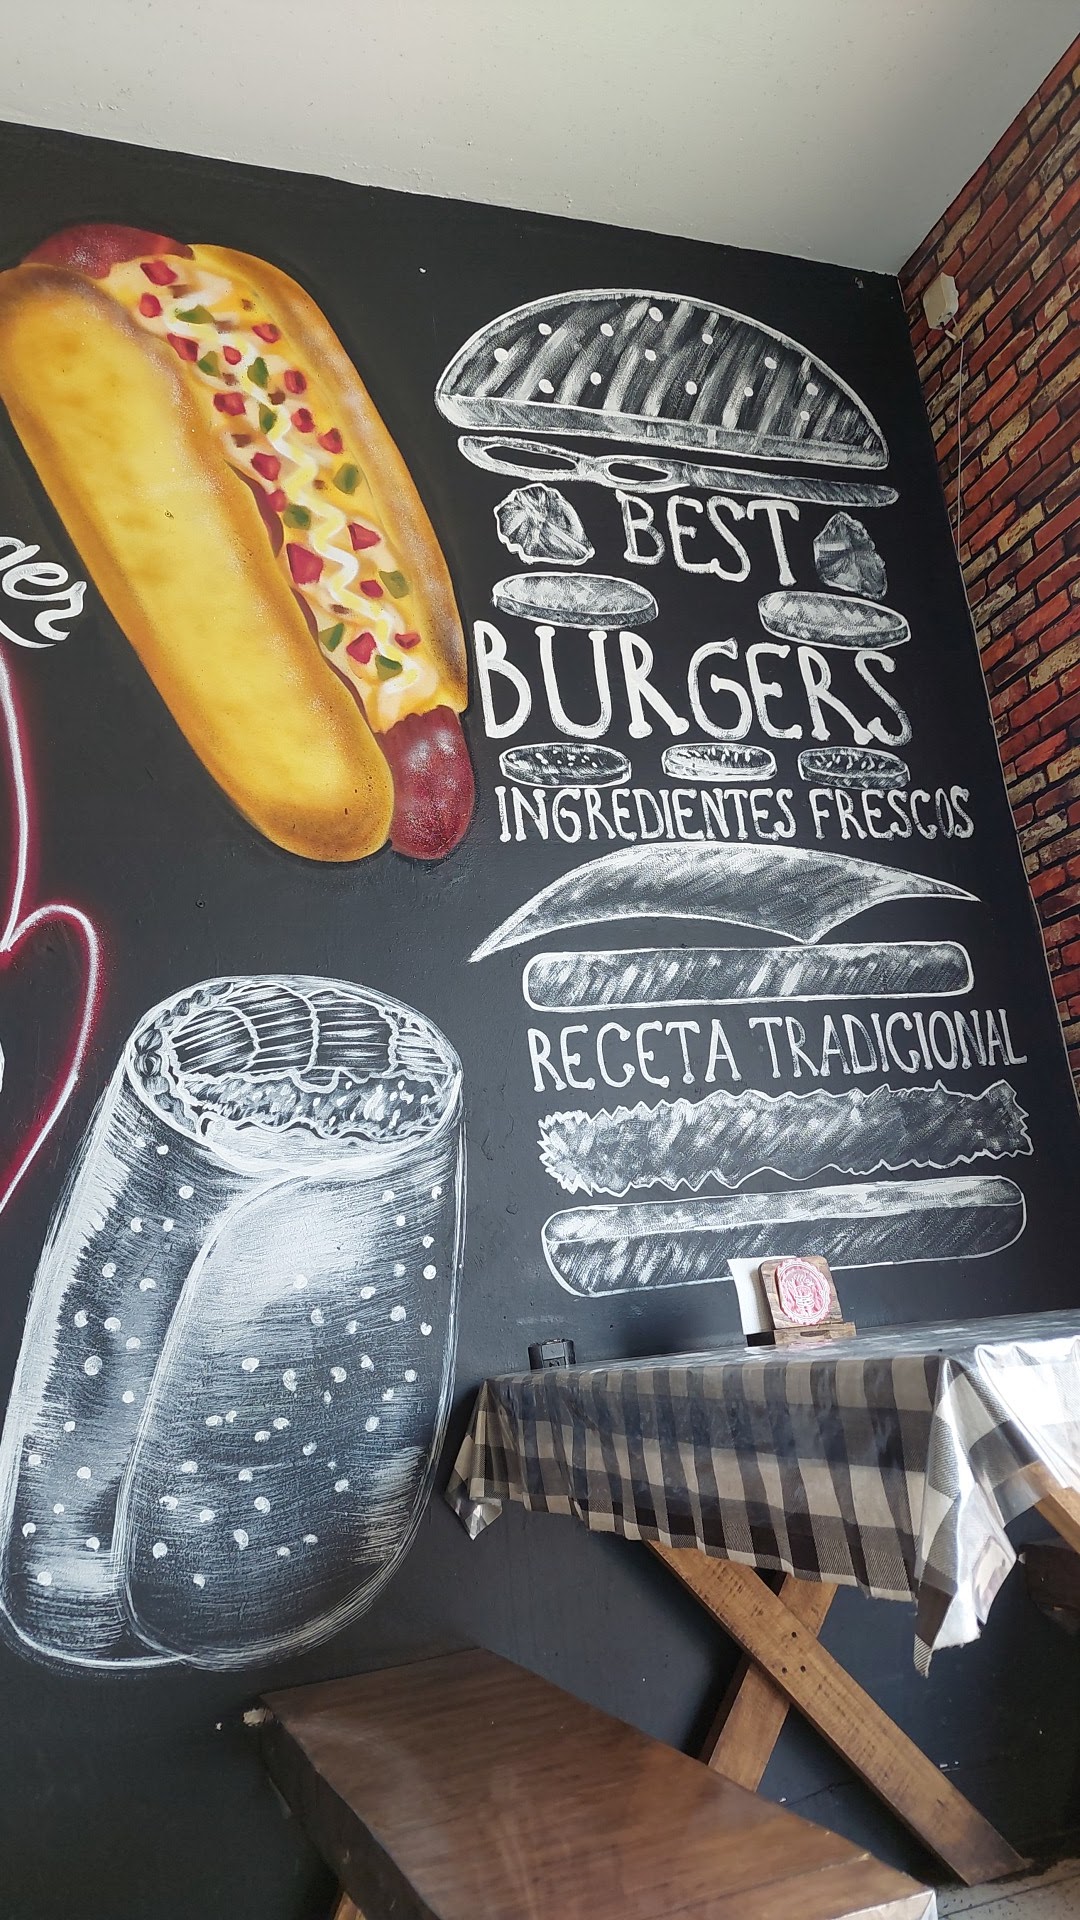 BEST
BURGERS
INGREDIENTES FRESCOS
RECETA TRADICIONAL